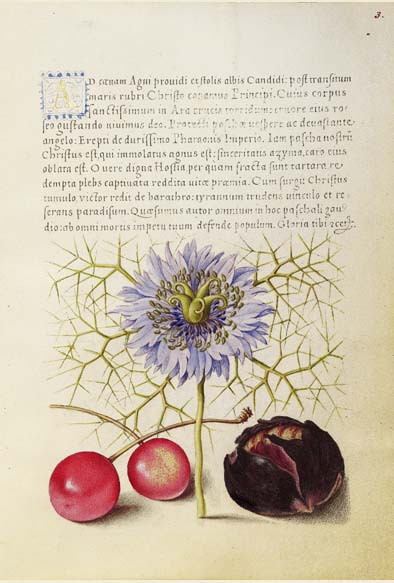 3.
AD cœnam Agni providi et stolis albis Candidi: post transitum
maris rubri Christo canamus Principi. Cuius corpus
sanctissimum in Ara crucis torridum: cruore eius ro-
seo gustando uiuimus deo. Protecti paschæ uespere ac deuastante
angelo: Erepti de durissimo Pharaonis Imperio. Iam pascha nostrũ
Christus est, qui immolatus agnus est: sinceritatis azyma, caro eius
oblata est. O vere digna Hostia per quam fracta sunt tartara, re-
dempta plebs captiuata reddita vitæ præmia. Cum surgit Christus
tumulo, victor redit de barathro: tyrannum trudens vinculo et re-
serans paradisum. Quæsumus autor omnium in hoc paschali gau-
dio: ab omni mortis impetu tuum defende populum. Gloria tibi